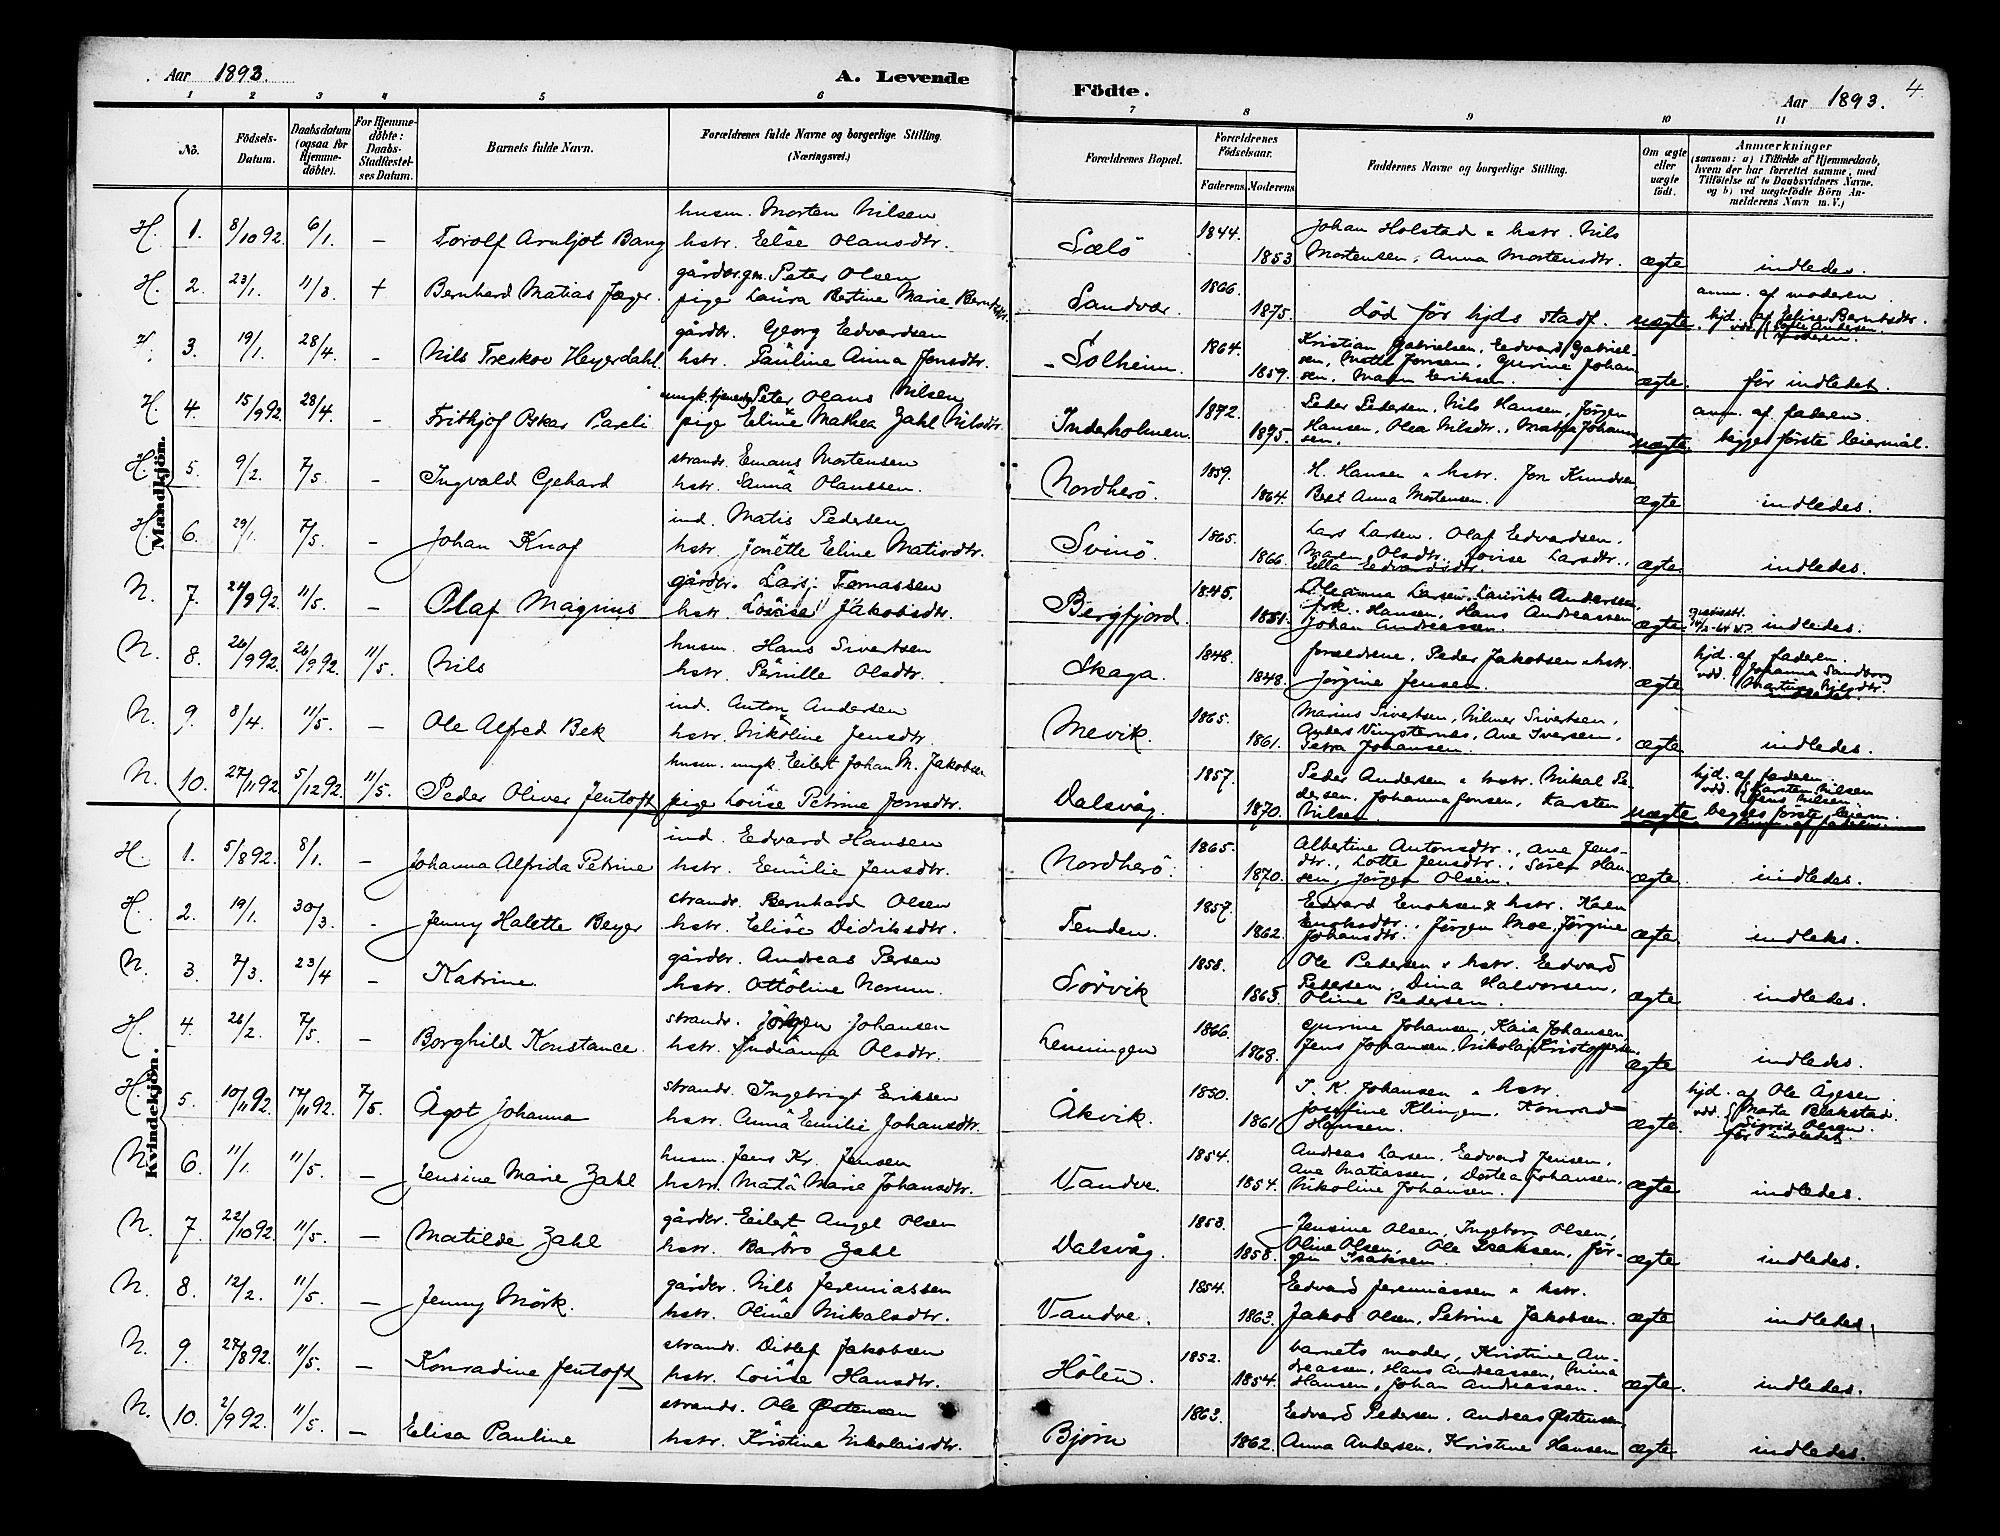 Aar 1893.
A. Levende
Födte.
Aar 1893.
4
1 2 3 4 5 6 7 8 9 10 11
No.
Födsels-Datum.
Daabsdatum (ogsaa for Hjemmedöbte).
For Hjemmedöbte: Daabs-Stadfæstelses Datum.
Barnets fulde Navn.
Forældrenes fulde Navne og borgerlige Stilling. (Næringsvei.)
Forældrenes Bopæl.
Forældrenes Födselsaar.
Faderens. Moderens.
Faddernes Navne og borgerlige Stilling.
Om ægte eller uægte födt.
Anmærkninger (saasom: a) i Tilfælde af Hjemmedaab, hvem der har forrettet samme, med Tilföielse af to Daabsvidners Navne, og b) ved uægtefödte Börn Anmelderens Navn m. V.)
Mandkjön.
H. 1. 8/10 92. 6/1. – Torolf Arnljot Bang
husm. Morten Nilsen
hstr. Elise Olausdtr.
Sælö 1844. 1853
Johan Holstad & hstr. Nils
Mortensen, Anna Mortensdtr. ægte indledes.
H. 2. 23/1. 11/3 + Bernhard Matias Jæger.
gårdbr.gm. Peter Olsen
pige Laura Bertine Marie
Sandvær 1866. 1875.
död för hjds stadf. uægte.
anm. af moderen
hjd. af Elise Berntsdtr.
3. 19/1. 28/4. – Nils Treskov Heyerdahl.
gårdbr. Georg Edvardsen
hstr. Pauline Anna Jensdtr.
Solheim 1864. 1859.
Kristian Gabrielsen, Edvard Gabriel-
sen, Mette Jonsen, Gurine Johan
sen, Maren Eriksen. ægte. för indledet.
H. 4. 15/9 92. 28/4. – Frithjof Oskar Pareli
ungk. Peter Olaus Nilsen
pige Eline Mathea Zahl Nilsdtr.
Inderholmen. 1872. 1875.
Peder Pedersen, Nils Hansen, Jörgen
Hansen, Olea Nilsdtr., Johann
sen. uægte
anm. af faderen
begges förste leiermål.
H. 5. 9/2. 7/5. – Ingvald Gehard
strands. Emaus Mortensen
hstr. Sanna Olaussen.
Nordherö. 1859. 1864.
H. Hansen & hstr. Jon Knudsen
Beret Anna Mortensen. ægte indledes.
H. 6. 29/1. 7/5. – Johan Knof
ind. Matis Pedersen
hstr. Jonette Eline Matisdtr.
Svinö. 1865. 1866.
Lars Larsen. Olaf Edvardsen.
Maren Olsdtr. Lovise Larsdtr.,
Ella Edvardsdtr. ægte indledes.
N. 7. 24/9 92. 11/5. – Olaf Magnus
gårdbr. Lars Tomassen
hstr. Lovise Jakobsdtr.
Bergfjord 1845. 1851.
Oleanna Larsen, Laurits Andersen,
frk. Hansen, Hans Andreassen
Johan Andreassen. ægte indledes.
N. 8. 26/9 92. 26/9 92. 11/5 Nils
husm. Hans Sivertsen
hstr. Pernille Olsdtr.
Skaga. 1848. 1848.
forældrene, Peder Jakobsen & hstr.
Jörgine Jensen. ægte
hjd. af faderen.
vdd. Johanna Sandberg
Martine Nilsdtr.
indledes.
N. 9. 8/4. 11/5. – Ole Alfred Bek
ind. Anton Andersen
hstr. Nikoline Jensdtr.
Mevik. 1865. 1861.
Marius Sivertsen, Hilmer Sivertsen,
Anders Vingsternes, Ane Iversen,
Petra Johansen. ægte indledes.
N. 10. 27/11 92 5/12 92. 11/5. Peder Oliver Jentoft
husm. ungk. Eilert Johan M. Jakobsen
pige Lovise Petrine Jensdtr.
Dalsvåg. 1857. 1870.
Peder Andersen & hstr. Mikal Pe-
dersen. Johanna Jonsen, Karsten
Nilsen. uægte
hjd. af faderen.
vdd. Karsten Nilsen
Jens Nilsen.
begges förste leierm.
anm. af faderen.
Kvindekjön.
H. 1. 5/8 92. 8/1. – Johanna Alfrida Petrine
ind. Edvard Hansen
hstr. Emilie Jensdtr.
Nordherö. 1865. 1870.
Albertine Antonsdtr., Ane Jens-
dtr., Lotte Jensdtr., Sören Han-
sen, Jörgen Olsen. ægte. indledes.
H. 2. 19/1. 30/3. – Jenny Halette Beyer
strands. Bernhard Olsen
hstr. Elise Didriksdtr.
Tenden. 1857. 1862.
Edvard Enoksen & hstr. Karen
Enoksdtr., Jörgen Moe, Jörgine
Johansdtr. ægte indledes.
N. 3. 7/3. 23/4 – Katrine.
gårdbr. Andreas Persen
hstr. Ottoline Norum.
Sörvik 1858. 1863.
Ole Pedersen & hstr. Edvard
Pedersen, Dina Halvorsen,
Oline Pedersen. ægte indledes.
H. 4. 26/2. 7/5. – Borghild Konstance.
strands. Jörgen Johansen
hstr. Indianna Olsdtr.
Lenningen 1866. 1868.
Gurine Johansen, Kaia Johansen
Jens Johansen, Nikolai Kristoffersen. ægte indledes.
H. 5. 10/11 92. 17/11 92. 7/5. Ågot Johanna
strands. Ingebrigt Eriksen
hstr. Anna Emilie Johansdtr.
Åkvik. 1850. 1861
I. K. Johansen & hstr.
Josefine Klingen. Konrad
Hansen. ægte
hjd. af Ole Ågesen.
vdd. Marta Blakstad.
Sigrid Olsen.
för indledet.
N. 6. 11/1. 11/5. – Jensine Marie Zahl
husm. Jens Kr. Jensen
hstr. Marta Marie Johansdtr.
Vandve. 1854. 1854.
Andreas Larsen, Edvard Jensen,
Ane Matiassen, Dortea Johansen,
Nikoline Johansen. ægte indledes.
N. 7. 22/10 92. 11/5. – Matilde Zahl
gårdbr. Eilert Angel Olsen
hstr. Barbro Zahl
Dalsvåg 1853. 1858.
Jensine Olsen, Ingeborg Olsen,
Oline Olsen, Ole Isaksen, Jör-
gen Isaksen. ægte indledes.
N. 8. 12/2. 11/5. – Jenny Mörk.
gårdbr. Nils Jeremiassen
hstr. Oline Mikalsdtr.
Vandve. 1854. 1863.
Edvard Jeremiassen & hstr.
Jakob Olsen, Petrine Jakobsen. ægte indledes.
N. 9. 27/8 92. 11/5. – Konradine Jentoft
strands. Ditlef Jakobsen
hstr. Lovise Hansdtr.
Holen. 1852. 1854.
barnets moder, Kristine An-
dreassen, Hans Andreassen, Mina
Hansen, Johan Andreassen. ægte. indledes.
N. 10. 2/9 92. 11/5. – Elisa Pauline
strands. Ole Östensen
hstr. Kristine Nikolaisdtr.
Björn 1863. 1862.
Edvard Pedersen, Andreas Östensen
Anna Andersen, Kristine Hansen ægte indledes.